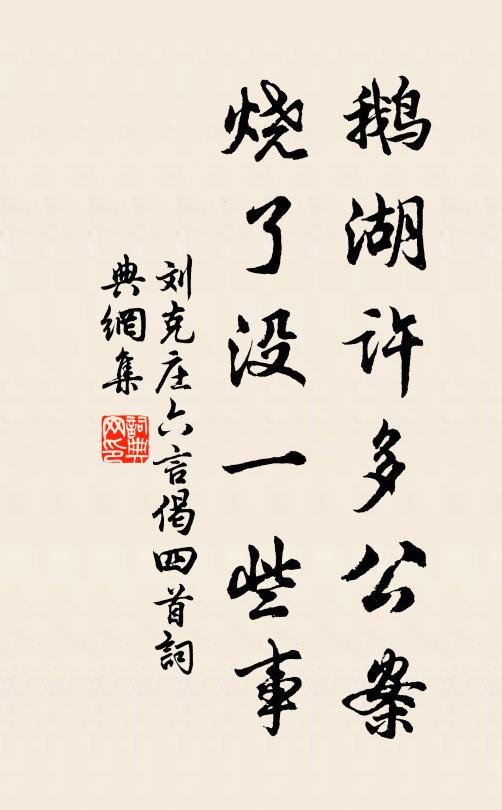 鹅湖许多公案
烧了没一些事
刘克庄六言偈四首詞
典網集
詞典
网印